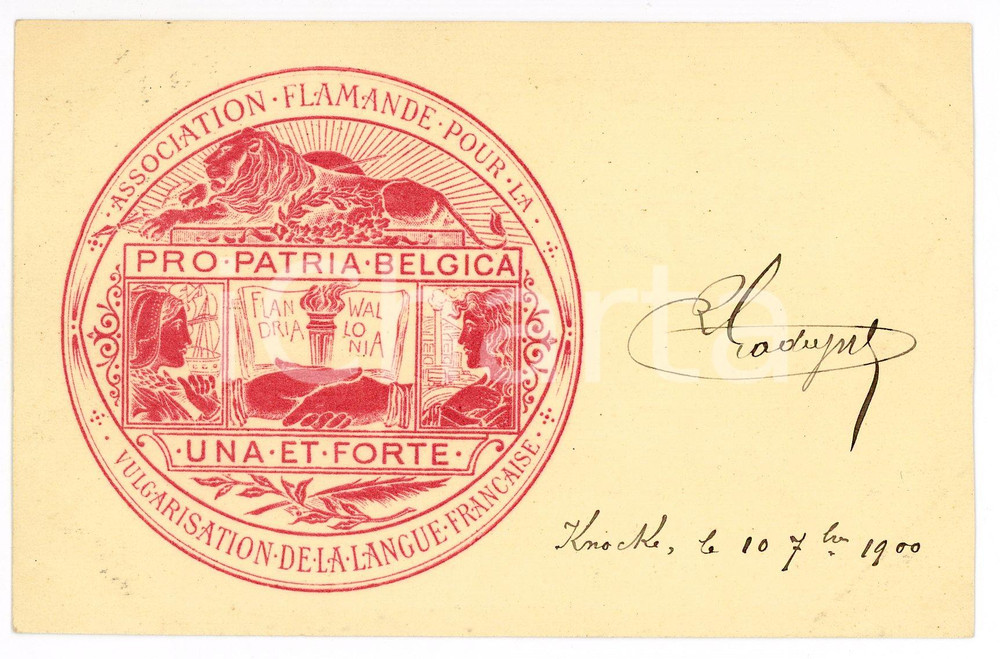 ·ASSOCIATION·FLAMANDE·POUR·LA·
PRO·PATRIA·BELGICA
FLAN
DRIA
WAL
LO
NIA
·UNA·ET·FORTE·
VULGARISATION·DE·LA·LANGUE·FRANÇAISE·
Knocke, le 10 7bre 1900
Charta